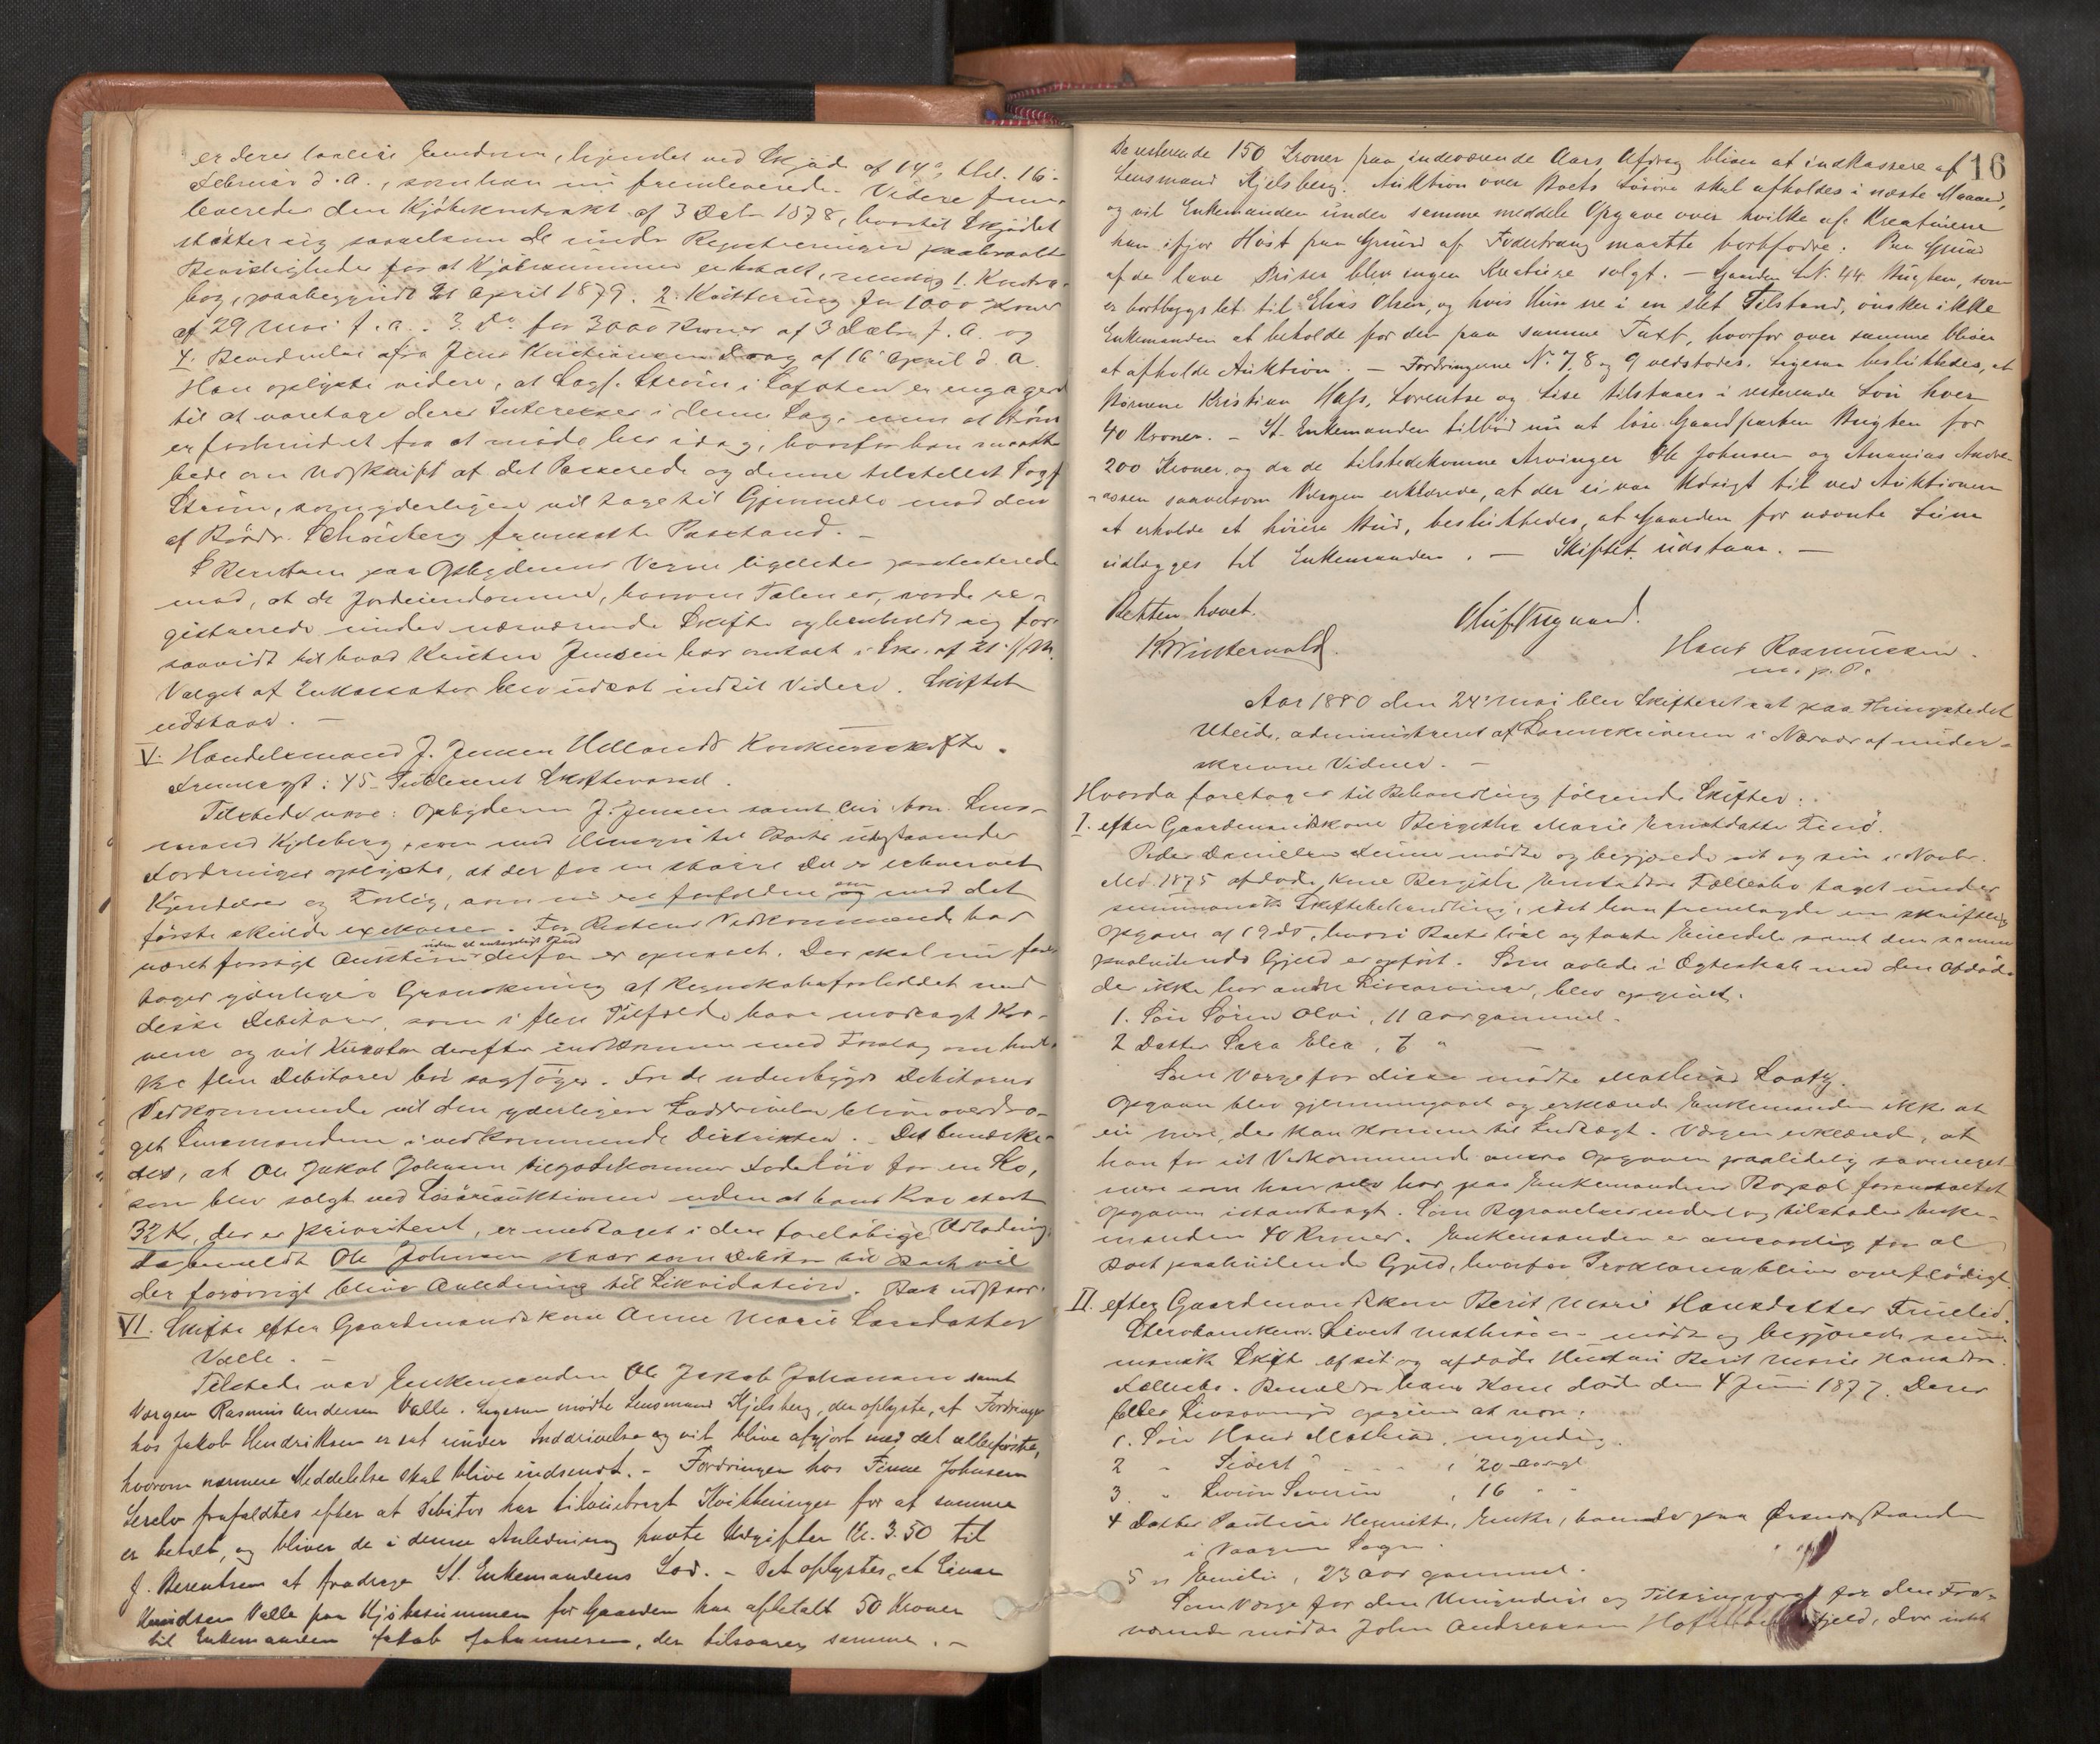 er deres lovlige Eiendom, hjemlet ved Skjøde af 14de tbl. 16.
Februar d. A., som han nu fremleverede. Videre frem-
leveredes den Kjøbekontrakt af 3 Dcbr 1878, hvortil Skjødet
støtter sig saavelsom de under Registreringen paaberaabte
Bevisligheder for at Kjøbesummen er betalt, nemlig 1. Kontra-
bog, paabegyndt 21 April 1879. 2. Kvittering for 1000 Kroner
af 29 Mai f. a. 3. Do for 3000 Kroner af 3 Decbr f. A. og
4. Bevidnelse fra Jens Kristiansen Laag af 16 April d. A.
Han oplyste videre, at Sagf. Strøm i Lofoten er engageret
til at varetage deres Interesser i denne Sag, men at Strøm
er forhindret fra at møde her idag, hvorfor han maatte
bede om Udskrift af det Passerede og denne tilstillet Sagf.
Strøm, som yderligere vil tage til Gjenmæle mod den
af Brødr. Schønberg fremsatte Paastand. –
J Berntsen paa Opbyderens Vegne ligeledes protesterede
mod, at de Jordeiendomme, hvorom Talen er, vorde re-
gistrerede under nærværende Skifte og henholdt sig for-
saavidt til hvad Kristen Jensen har anført i Skr. af 21 f. M.
Valget af Inkassator blev udsat indtil Videre. Skiftet
udstaar. –
V. Handelsmand J. Jensen Uellands Konkursskifte.
Fremlagt: 45. Publiceret Skiftevarsel.
Tilstede vare: Opbyderen J. Jensen samt Cur. bon. Lens-
mand Kjelsberg, som med Hensyn til Boets udestaaende
Fordringer oplyste, at der for en større Del er erhvervet
Kjendelser og Forlig, som nu er forfaldne og med det
første skulde exekveres. For Restens Vedkommende har
været forsøgt Auktion uden at antageligt Bud derfor er opnaaet. Der skal nu fore-
tages yderligere Granskning af Regnskabsforholdet med
disse Debitorer, som i flere Tilfælde have modsagt Kra-
vene og vil Kurator derefter indkomme med Forslag om hvil-
ke flere Debitorer bør sagsøges. For de udenbygds Debitorers
Vedkommende vil den yderligere Inddrivelse blive overdra-
get Lensmændene i vedkommende Distrikter. – Det bemærke-
des, at Ole Jakob Johnsen tilgodekommer Foderløn for en Ko,
som blev solgt ved Løsøreauktionen uden at hans Krav stort
32 Kr, der er prioriteret, er medtaget i den foreløbige Udlodning,
da bemeldte Ole Johnsen staar som Debitor til Boet vil
der forøvrigt blive Anledning til Likvidation. Boet udstaar.
VI. Skifte efter Gaardmandskone Anne Marie Larsdatter
Valle. –
Tilstede var Enkemanden Ole Jakob Johansen samt
Værgen Rasmus Andersen Valle. Ligesom mødte Lensmand Kjelsberg, der oplyste, at Fordringen
hos Jakob Hendriksen er sat under Inddrivelse og vil blive afgjort med det allerførste,
hvorom nærmere Meddelelse skal blive indsendt. – Fordringen hos Finne Johnsen
frafaldtes efter at Debitor har tilveiebragt Kvitteringer for at samme
er betalt, og bliver de i denne Anledning havte Udgifter Kr. 3.50 til
J. Berentsen at fradrage St. Enkemandens Lod. – Det oplystes, at Einar
Knudsen Valle paa Kjøbesummen for Gaarden har afbetalt 50 Kroner
til Enkemanden Jakob Johannesen, der tilsvarer samme. –
16
De resterende 150 Kroner paa indeværende Aars Afdrag bliver at indkassere af
Lensmand Kjelsberg. Auktion over Boets Løsøre skal afholdes i næste Maaned,
og vil Enkemanden under samme meddele Opgave over hvilke af Kreaturene
han ifjor Høst paa Grund af Fodertrang maatte bortfodre. Paa Grund
af de lave Priser blev ingen Kreature solgt. – Gaarden L.N. 44 Bugten, som
er bortbygslet til Elias Olsen, og hvis Huse ere i en slet Tilstand, ønsker ikke
Enkemanden at beholde for den paa samme satte Taxt, hvorfor over samme bliver
at afholde Auktion. – Fordringerne No. 7, 8 og 9 vedstodes. Ligesaa besluttedes, at
Børnene Kristian Hass, Lorentse og Lise tilstaaes i resterende Løn hver
40 Kroner. – St. Enkemanden tilbød nu at løse Gaardparten Bugten for
200 Kroner, og da de tilstedekomne Arvinger Ole Johnsen og Ananias Andre-
assen saavelsom Værgen erklærede, at der ei var Udsigt til ved Auktionen
at erholde et høiere Bud, besluttedes, at Gaarden for nævnte Sum
udlægges til Enkemanden. – Skiftet udstaar. –
Retten hævet.
Oluf Nygaard.
Hans Rasmussen
m. p. P.
Aar 1880 den 24 Mai blev Skifteret sat paa Thingstedet
Uteid, administreret af Sorenskriveren i Nærvær af under-
skrevne Vidner. –
Hvorda foretoges til Behandling følgende Skifter:
I. efter Gaardmandskone Bergithe Marie Ernstdatter Finnø.
Peder Danielsen Finnø mødte og begjærede sit og sin i Novbr.
Md. 1875 afdøde Kone Bergithe Ernstsdatter Fællesbo taget under
summarisk Skiftebehandling, idet han fremlagde en skriftlig
Opgave af 19 ds, hvori Boets løse og faste Eiendele samt den samme
paahvilende Gjæld er opført. Som avlede i Ægteskab med den Afdøde,
der ikke har andre Livsarvinger, blev opgivet:
1. Søn Søren Olai, 11 Aar gammel.
2 Datter Sara Elea, 7 " –
Som Værge for disse mødte Mathias
Opgaven blev gjennemgaaet og erklærede Enkemanden ikke at
eie mere, der kan komme til Indtægt. Værgen erklærede, at
han for sit Vedkommende ansaa Opgaven paalidelig saameget
mere som han selv har paa Enkemandens Bopæl foranstaltet
Opgaven istandbragt. Som Begravelsesudlæg tilstodes Enke-
manden 40 Kroner. Enkemanden er ansvarlig for al
Boet paahvilende Gjæld, hvorfor Proklama bliver overflødigt.
II. efter Gaardmandskone Berit Marie Hansdatter
Sterbbanken Sivert Mathias – mødte og begjærede sum-
marisk Skifte af sit og afdøde Hustru Berit Marie Hansdtr.
Fællesbo. Bemeldte hans Kone døde den 4 Juni 1877. Deres
fælles Livsarvinger opgives at være:
1. Søn Hans Mathias, myndig.
2 " Sivert , 20 Aar gl
3. " Severin , 16 " "
4 Datter Pauline Henriette, Enke, boende paa
i Vaagan Sogn.
5 " Emilie, 23 Aar gammel.
Som Værge for den Umyndige og Tilsynsværge for den Fra-
værende mødte John Andreassen